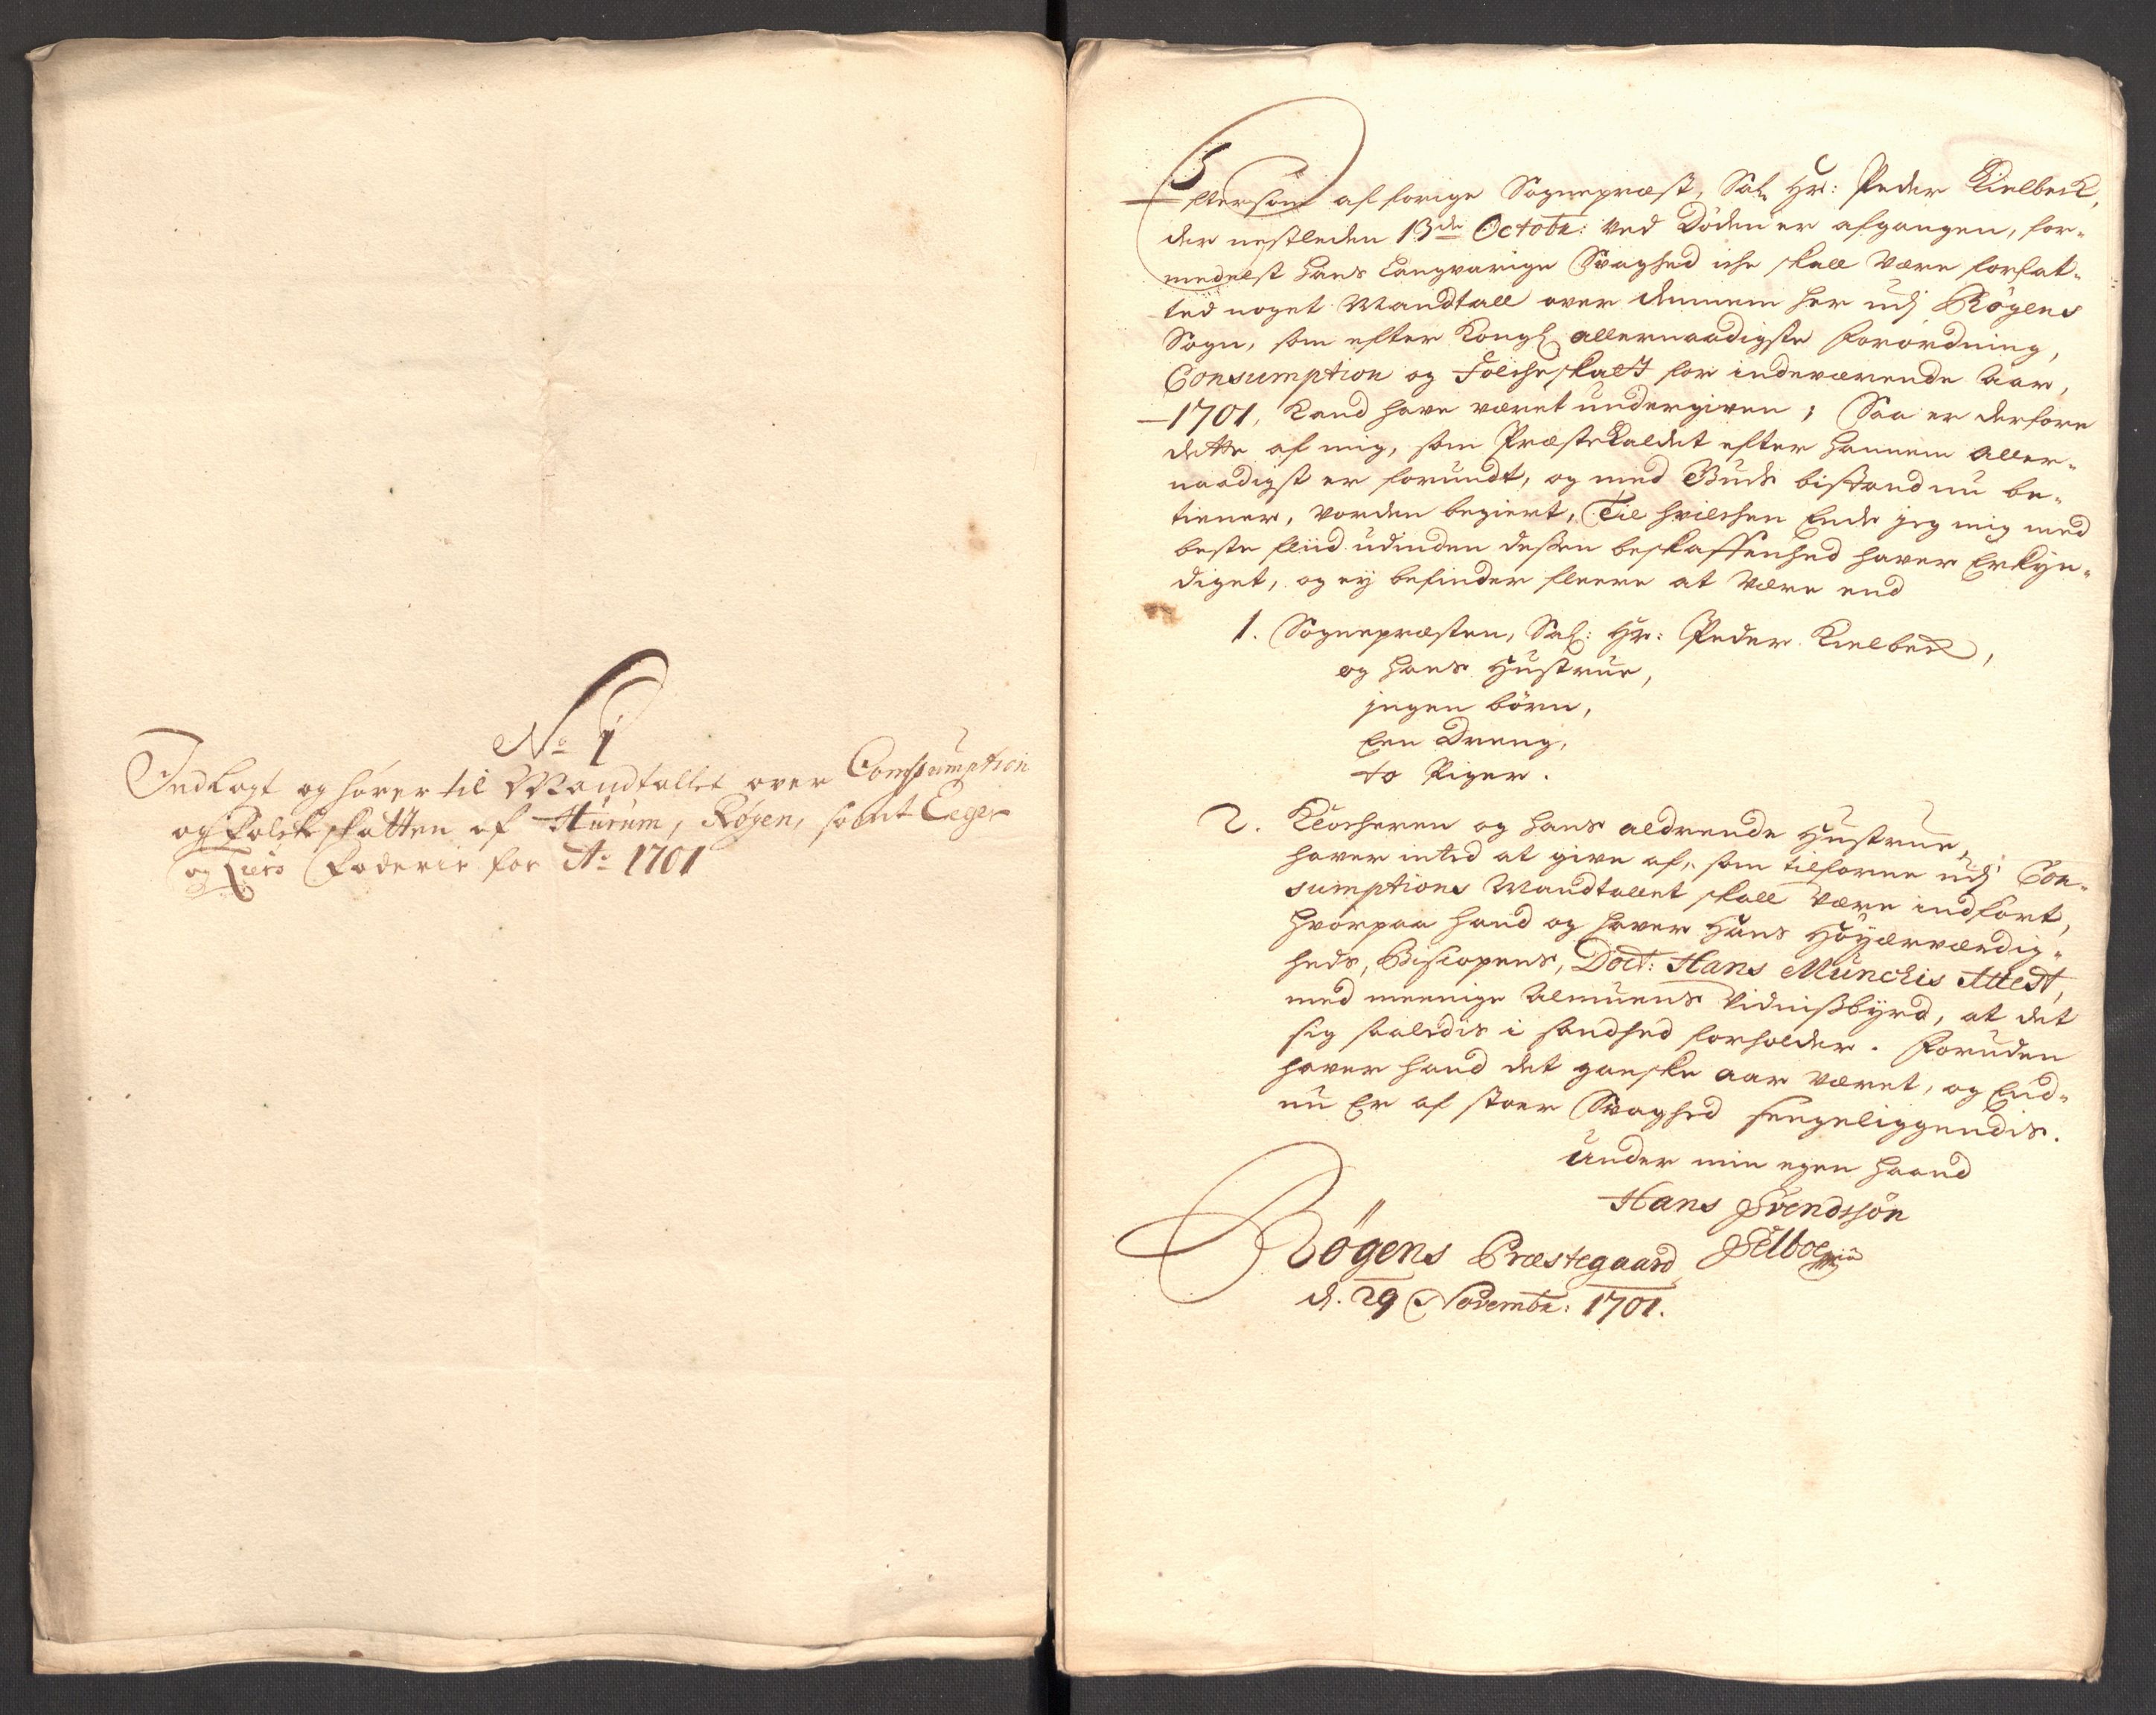 No 1
Indlagt og hører til Mandtallet over Consumption
og Folckeskatten af Hurum, Røgen, samt Eeger
og Foderie for Ao 1701
Eftersom af forige Sognepræst, Sal. Hr: Peder Kielbeck,
der nestleden 13de Octobr: ved Döden er afgangen, for-
medelst hans langvarige Svaghed iche skall være forfat-
ted noget Mandtall over dennem her udj Rögens
Sogn, som efter Kongl allernaadigste Forordning,
Consumption og Folcheskatt for indeværende Aar,
1701, kand have været undergiven; Saa er derfore
dette af mig, som Præstekaldet efter hannem aller-
naadigst er forundt, og med Guds bistand nu be-
tiener, vorden begiert, Til hvilchen Ende jeg mig med
beste fliid udinden dessen beskaffenhed haver Erkyn-
diget, og ey befinder fleere at være end
1. Sognepræsten, Sal: Hr: Peder Kielbeck,
og hans Hustrue,
jngen börn,
Een Dreng,
to Piger.
2. Klocheren og hans aldrende Hustrue,
haver inted at give af, som tilforne udj Con-
sumptions Mandtallet skall være indfört,
hvorpaa hand og haver Hans Höyærværdig-
heds, Biscopens, Doct: Hans Munchis Attest,
med meenige Almuens Vidnissbyrd, at det
sig saaledis i sandhed forholder. Foruden
haver hand det ganske aar været, og End-
nu Er af stoer Svaghed sengeliggendis.
Under min egen haand
Hans Svendssön
Selboe
Rögens Præstegaard
d. 29 Novembr: 1701.